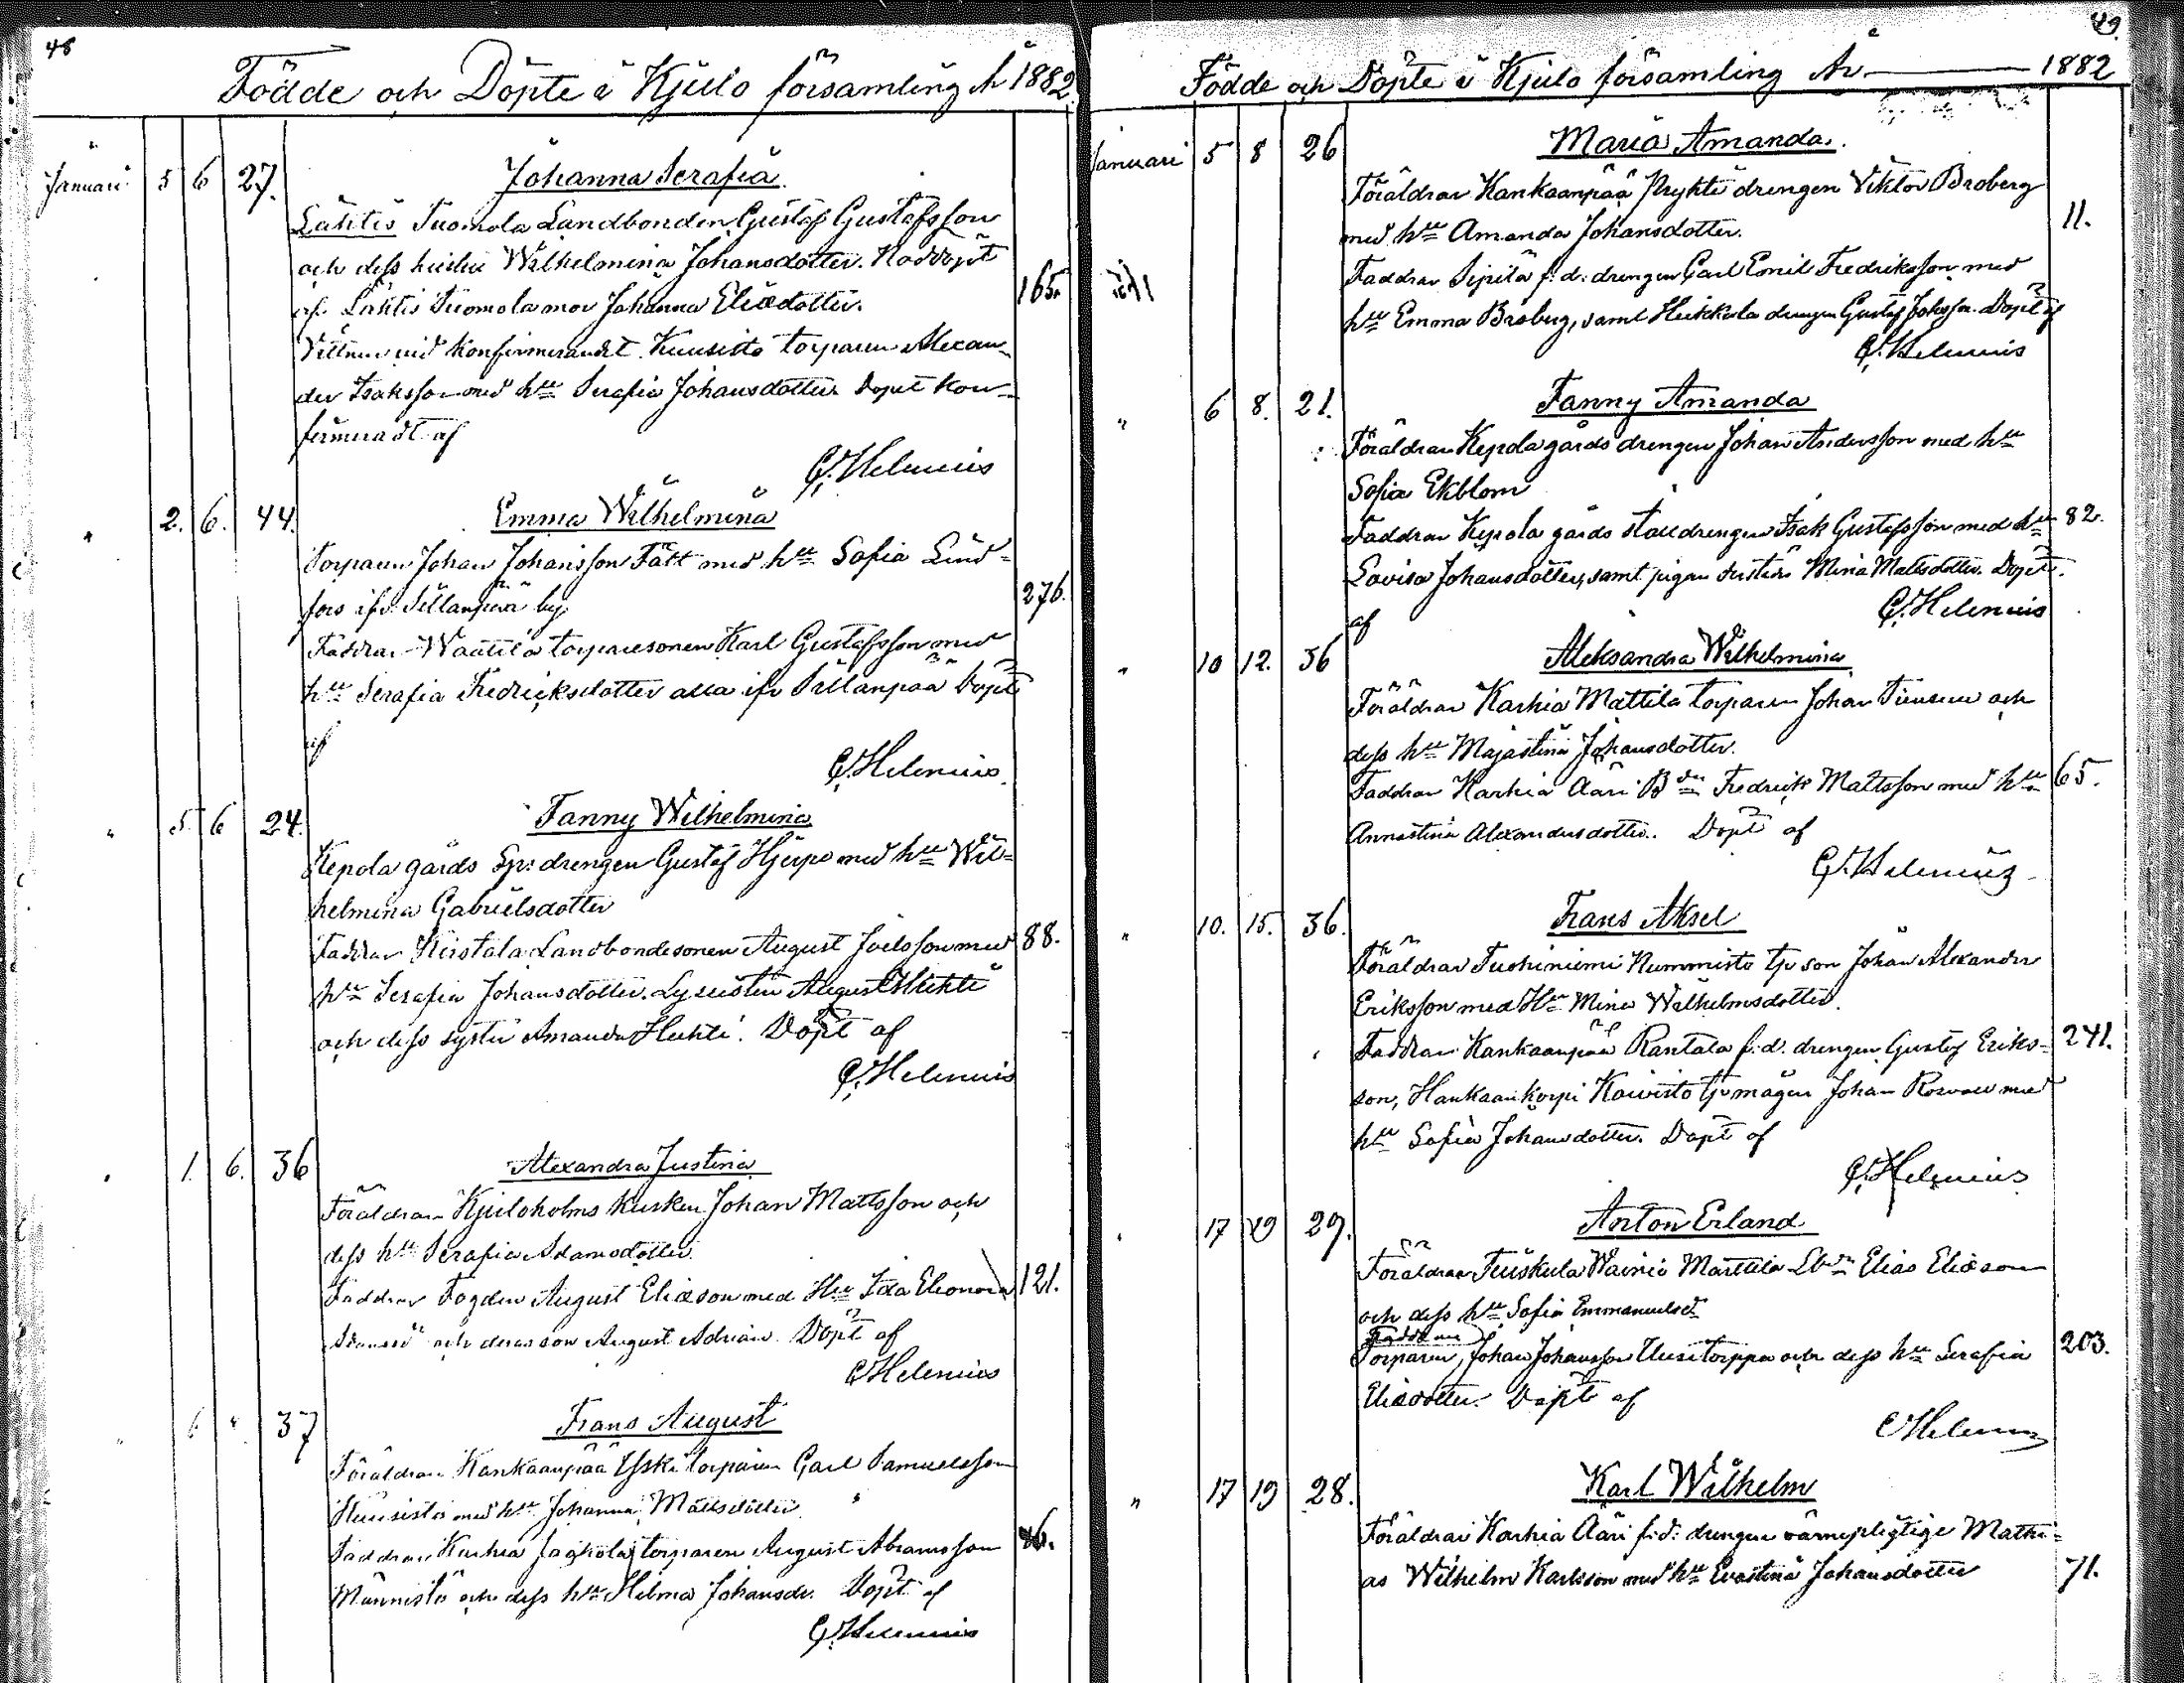 48
Födde och Döpte i Kjulo församling År 1882
Januari 5 6 27. Johanna Serafia
Lähtis Tuomola Landbonden Gustaf Gustafsson
och dess hustru Wilhelmina Johansdotter. Nöddöpt
af Lähtis Tuomola mor Johanna Eliædotter. 165.
Vittnen vid konfirmerandet Kuusisto torparen Alexan-
der Isaksson med hru Serafia Johansdotter. Döpet kon-
firmeradt af
C. Helenius
" 2. 6. 44. Emma Wilhelmina
Torparen Johan Johansson Fält med hru Sofia Lind-
fors ifr. Sillanpää by. 276.
Faddrar torparesonen Karl Gustafsson med
hru Serafia Fredriksdotter alla ifr Sillanpää Döpt
af
C. Helenius
" 5. 6 24. Fanny Wilhelmina
Kepola gårds drengen Gustaf Hjerpe med hru Wil-
helmina Gabrielsdotter
Faddrar Landbondesonen August Joelsson med 88.
hru Serafia Johansdotter. August
och dess syster Amanda. Döpt af
C. Helenius
" 1. 6. 36 Alexandra Justina
Föräldrar Kjuloholms kusken Johan Mattsson och
dess hru Serafia Adamsdotter.
Faddrar Fogden August Eliæson med Hru Ida Eleonora 121.
och deras son August Adrian. Döpt af
C Helenius
" 6 " 37 Frans August
Föräldrar Kankaanpää Yski torparen Carl Samuelsson
med hru Johanna Mattsdotter.
Faddrar Karhia Jaakola torparen August Abramsson 46.
Männistö och dess hru Hilma Johansdr. Döpt af
C. Helenius
49.
Födde och Döpte i Kjulo församling År 1882
Januari 5 8 26 Maria Amanda.
Föräldrar Kankaanpää Prykti drengen Viktor Broberg
med hru Amanda Johansdotter. 11.
Faddrar Sipilä f.d. drengen Carl Emil Fredriksson med
hru Emma Broberg, samt Heikkola drengen Gustaf Johsson. Döpt af
C. Helenius
" 6 8. 21. Fanny Amanda
Föräldrar Kepola gårds drengen Johan Andersson med hru
Sofia Ekblom
Faddrar Kepola gårds stalldrengen Isak Gustafsson med hru 82.
Lovisa Johansdotter, samt pigan Mina Mattsdotter. Döpt
af C. Helenius
" 10 12. 36 Aleksandra Wilhelmina
Föräldrar Karhia Mattila torparen Johan och
dess hru Majastina Johansdotter.
Faddrar Karhia Ääri Bden Fredrick Mattsson med hru 65.
Annastina Alexandersdotter. Döpt af
C. Helenius
" 10. 15. 36. Frans Aksel
Föräldrar Tuohiniemi Nummisto tp son Johan Alexander
Eriksson med Hru Mina Wilhelmsdotter.
Faddrar Kankaanpää Rantala f.d. drengen Gustaf Eriks- 241.
son, Hankaankorpi Koivisto tp mågen Johan med
hru Sofia Johansdotter. Döpt af
C. Helenius
" 17 19 29. Anton Erland
Föräldrar Tuiskula Wainio Marttila Lbdn Elias Eliæson
och dess hru Sofia Emmanuelsdr
Faddrar
Torparen Johan Johansson Uusitorppa och dess hru Serafia 203.
Eliædotter. Döpt af
C Helenius
" 17 19 28. Karl Wilhelm
Föräldrar Karhia Ääri f.d. drengen värnepligtige Mathi-
as Wilhelm Karlsson med hru Evastina Johansdotter 71.